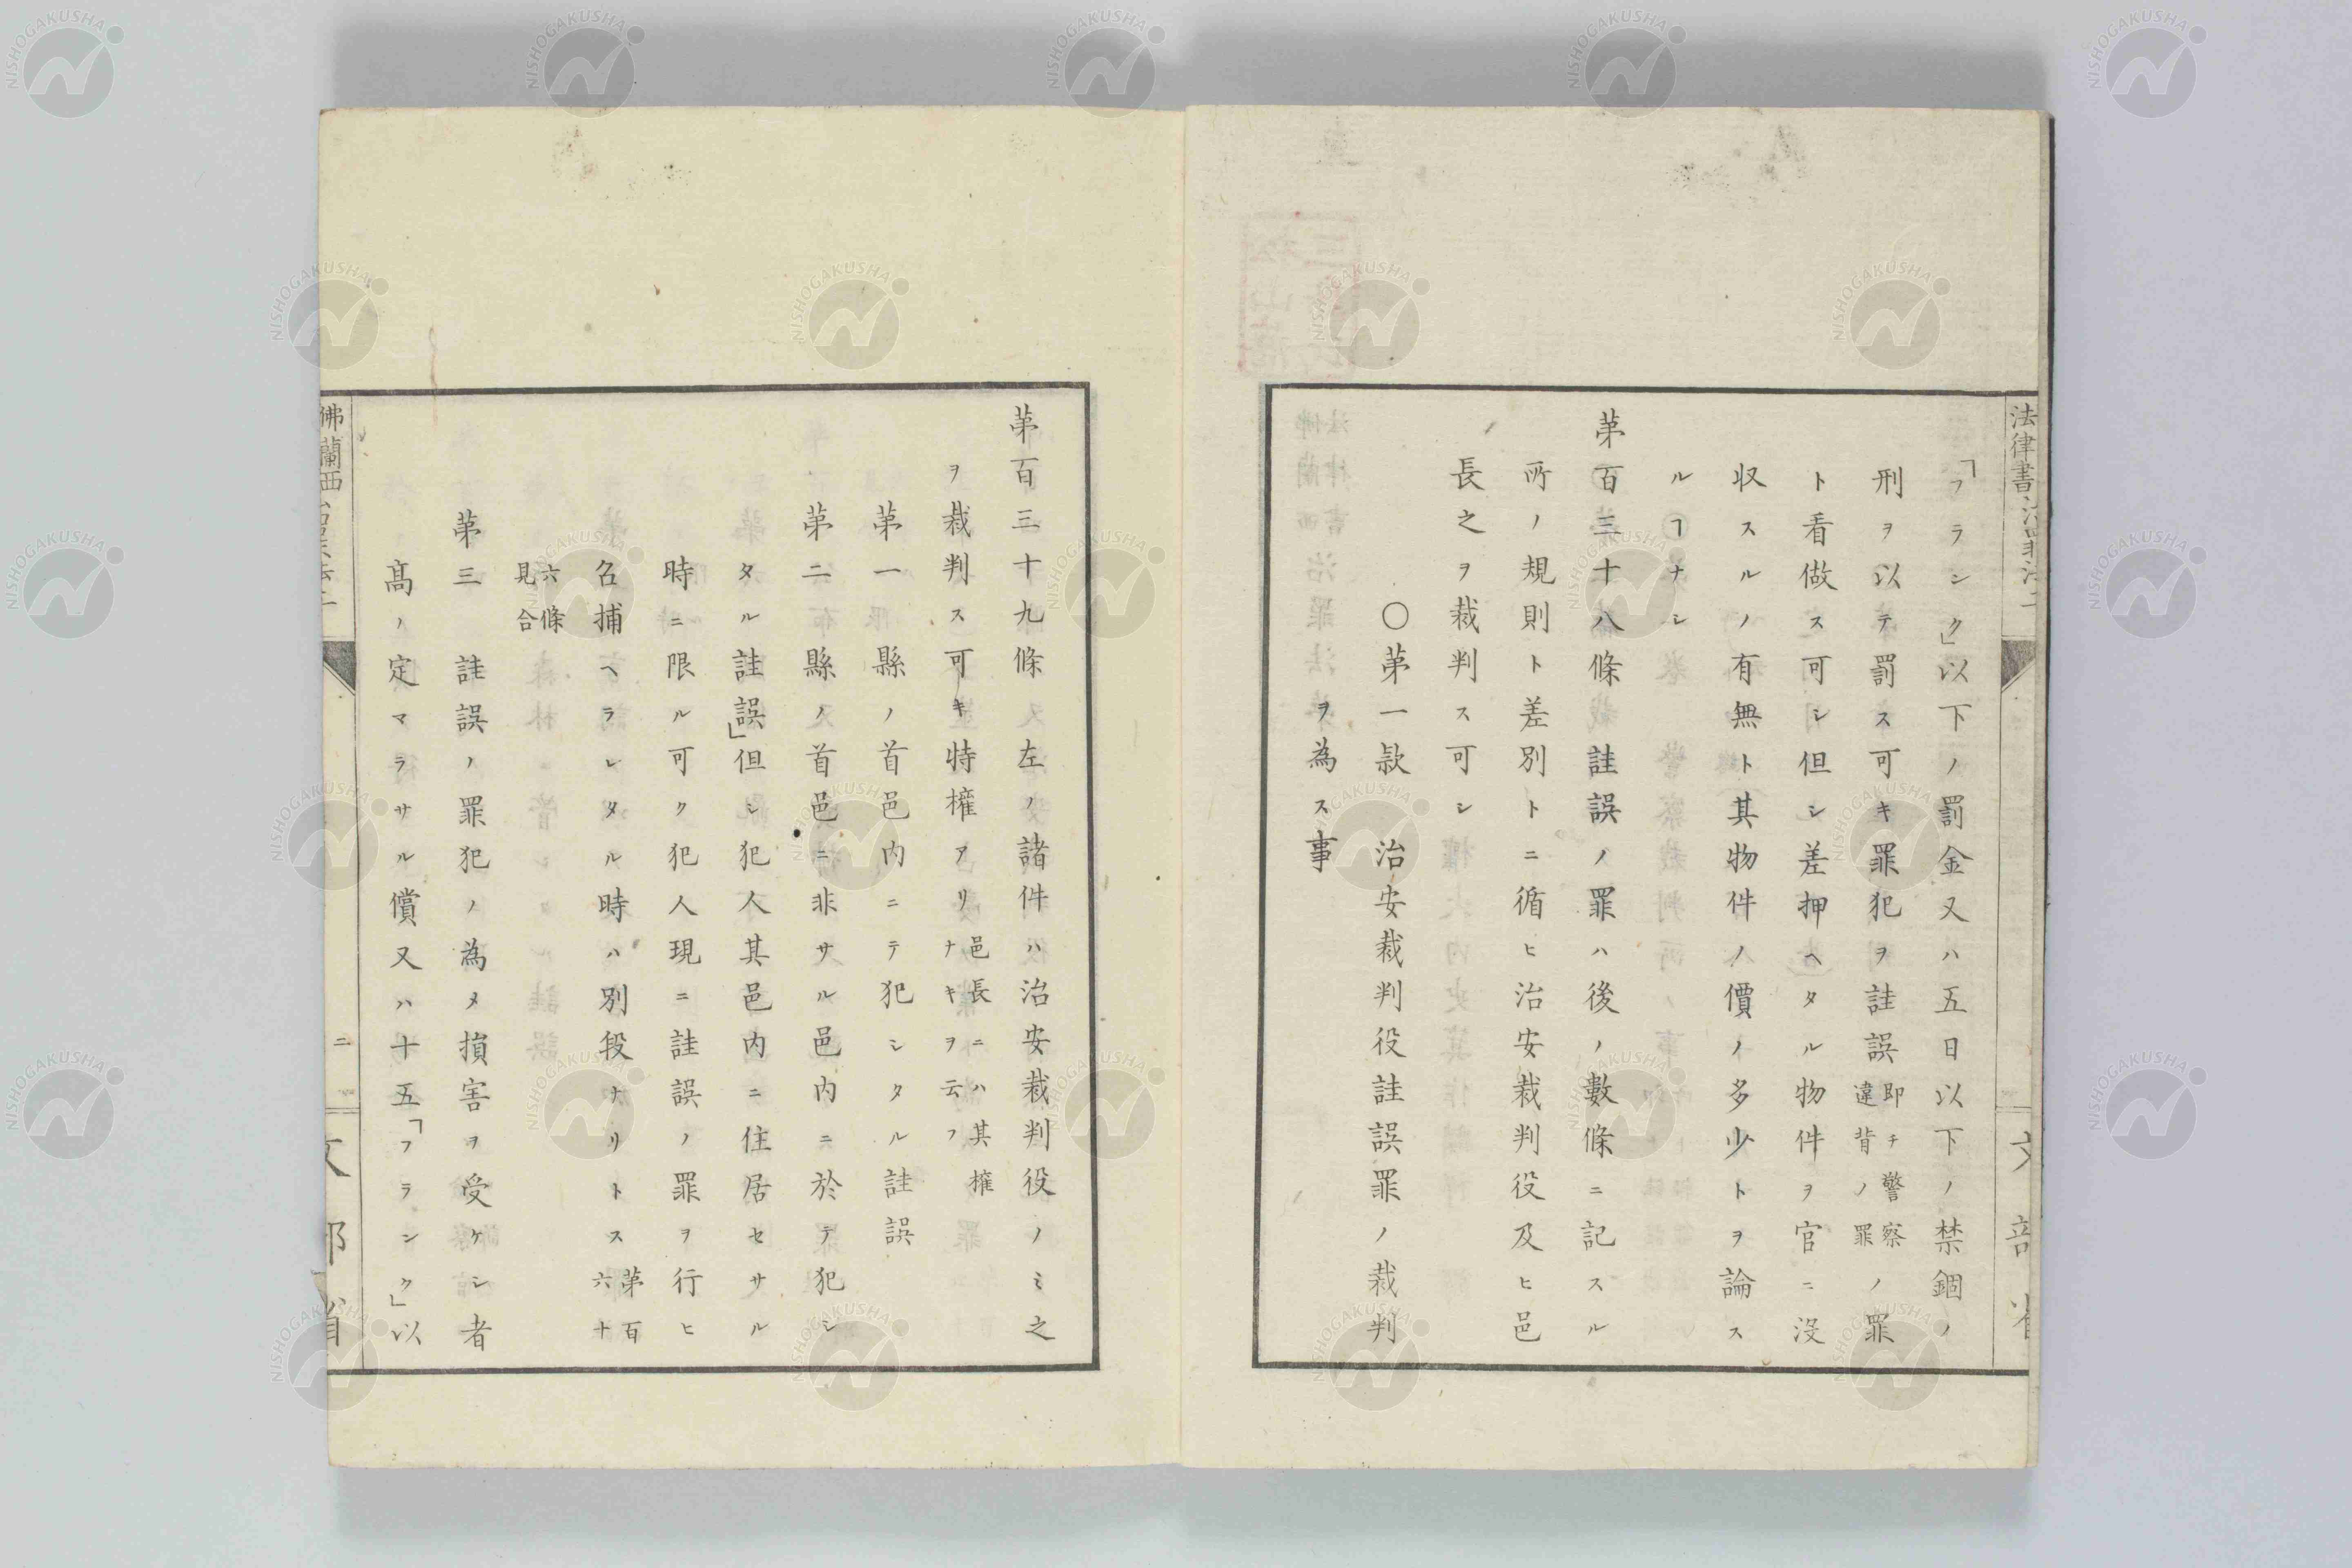 「フランク」以下ノ罰金又ハ五日以下ノ禁錮ノ
刑ヲ以テ罰ス可キ罪犯ヲ註誤即チ警察ノ罪
違背ノ罪
ト看做ス可シ但シ差押ヘタル物件ヲ官ニ沒
収スルノ有無ト其物件ノ價ノ多少トヲ論ス
ルヿナシ
苐百三十八條 註誤ノ罪ハ後ノ數條ニ記スル
所ノ規則ト差別トニ循ヒ治安裁判役及ヒ邑
長之ヲ裁判ス可シ
〇苐一款 治安裁判役註誤罪ノ裁判
ヲ為ス事
苐百三十九條 左ノ諸件ハ治安裁判役ノミ之
ヲ裁判ス可キ特権アリ邑長ニハ其権
ナキヲ云フ
苐一 縣ノ首邑内ニテ犯シタル註誤
苐二 縣ノ首邑ニ非サル邑内ニ於テ犯シ
タル註誤」但シ犯人其邑内ニ住居セサル
時ニ限ル可ク犯人現ニ註誤ノ罪ヲ行ヒ
名捕ヘラレタル時ハ別段ナリトス苐百
六十
六條
見合
苐三 註誤ノ罪犯ノ為メ損害ヲ受ケシ者
髙ノ定マラサル償又ハ十五「フランク」以
法律書
佛蘭西
二
文部省
NISHOGAKUSHA